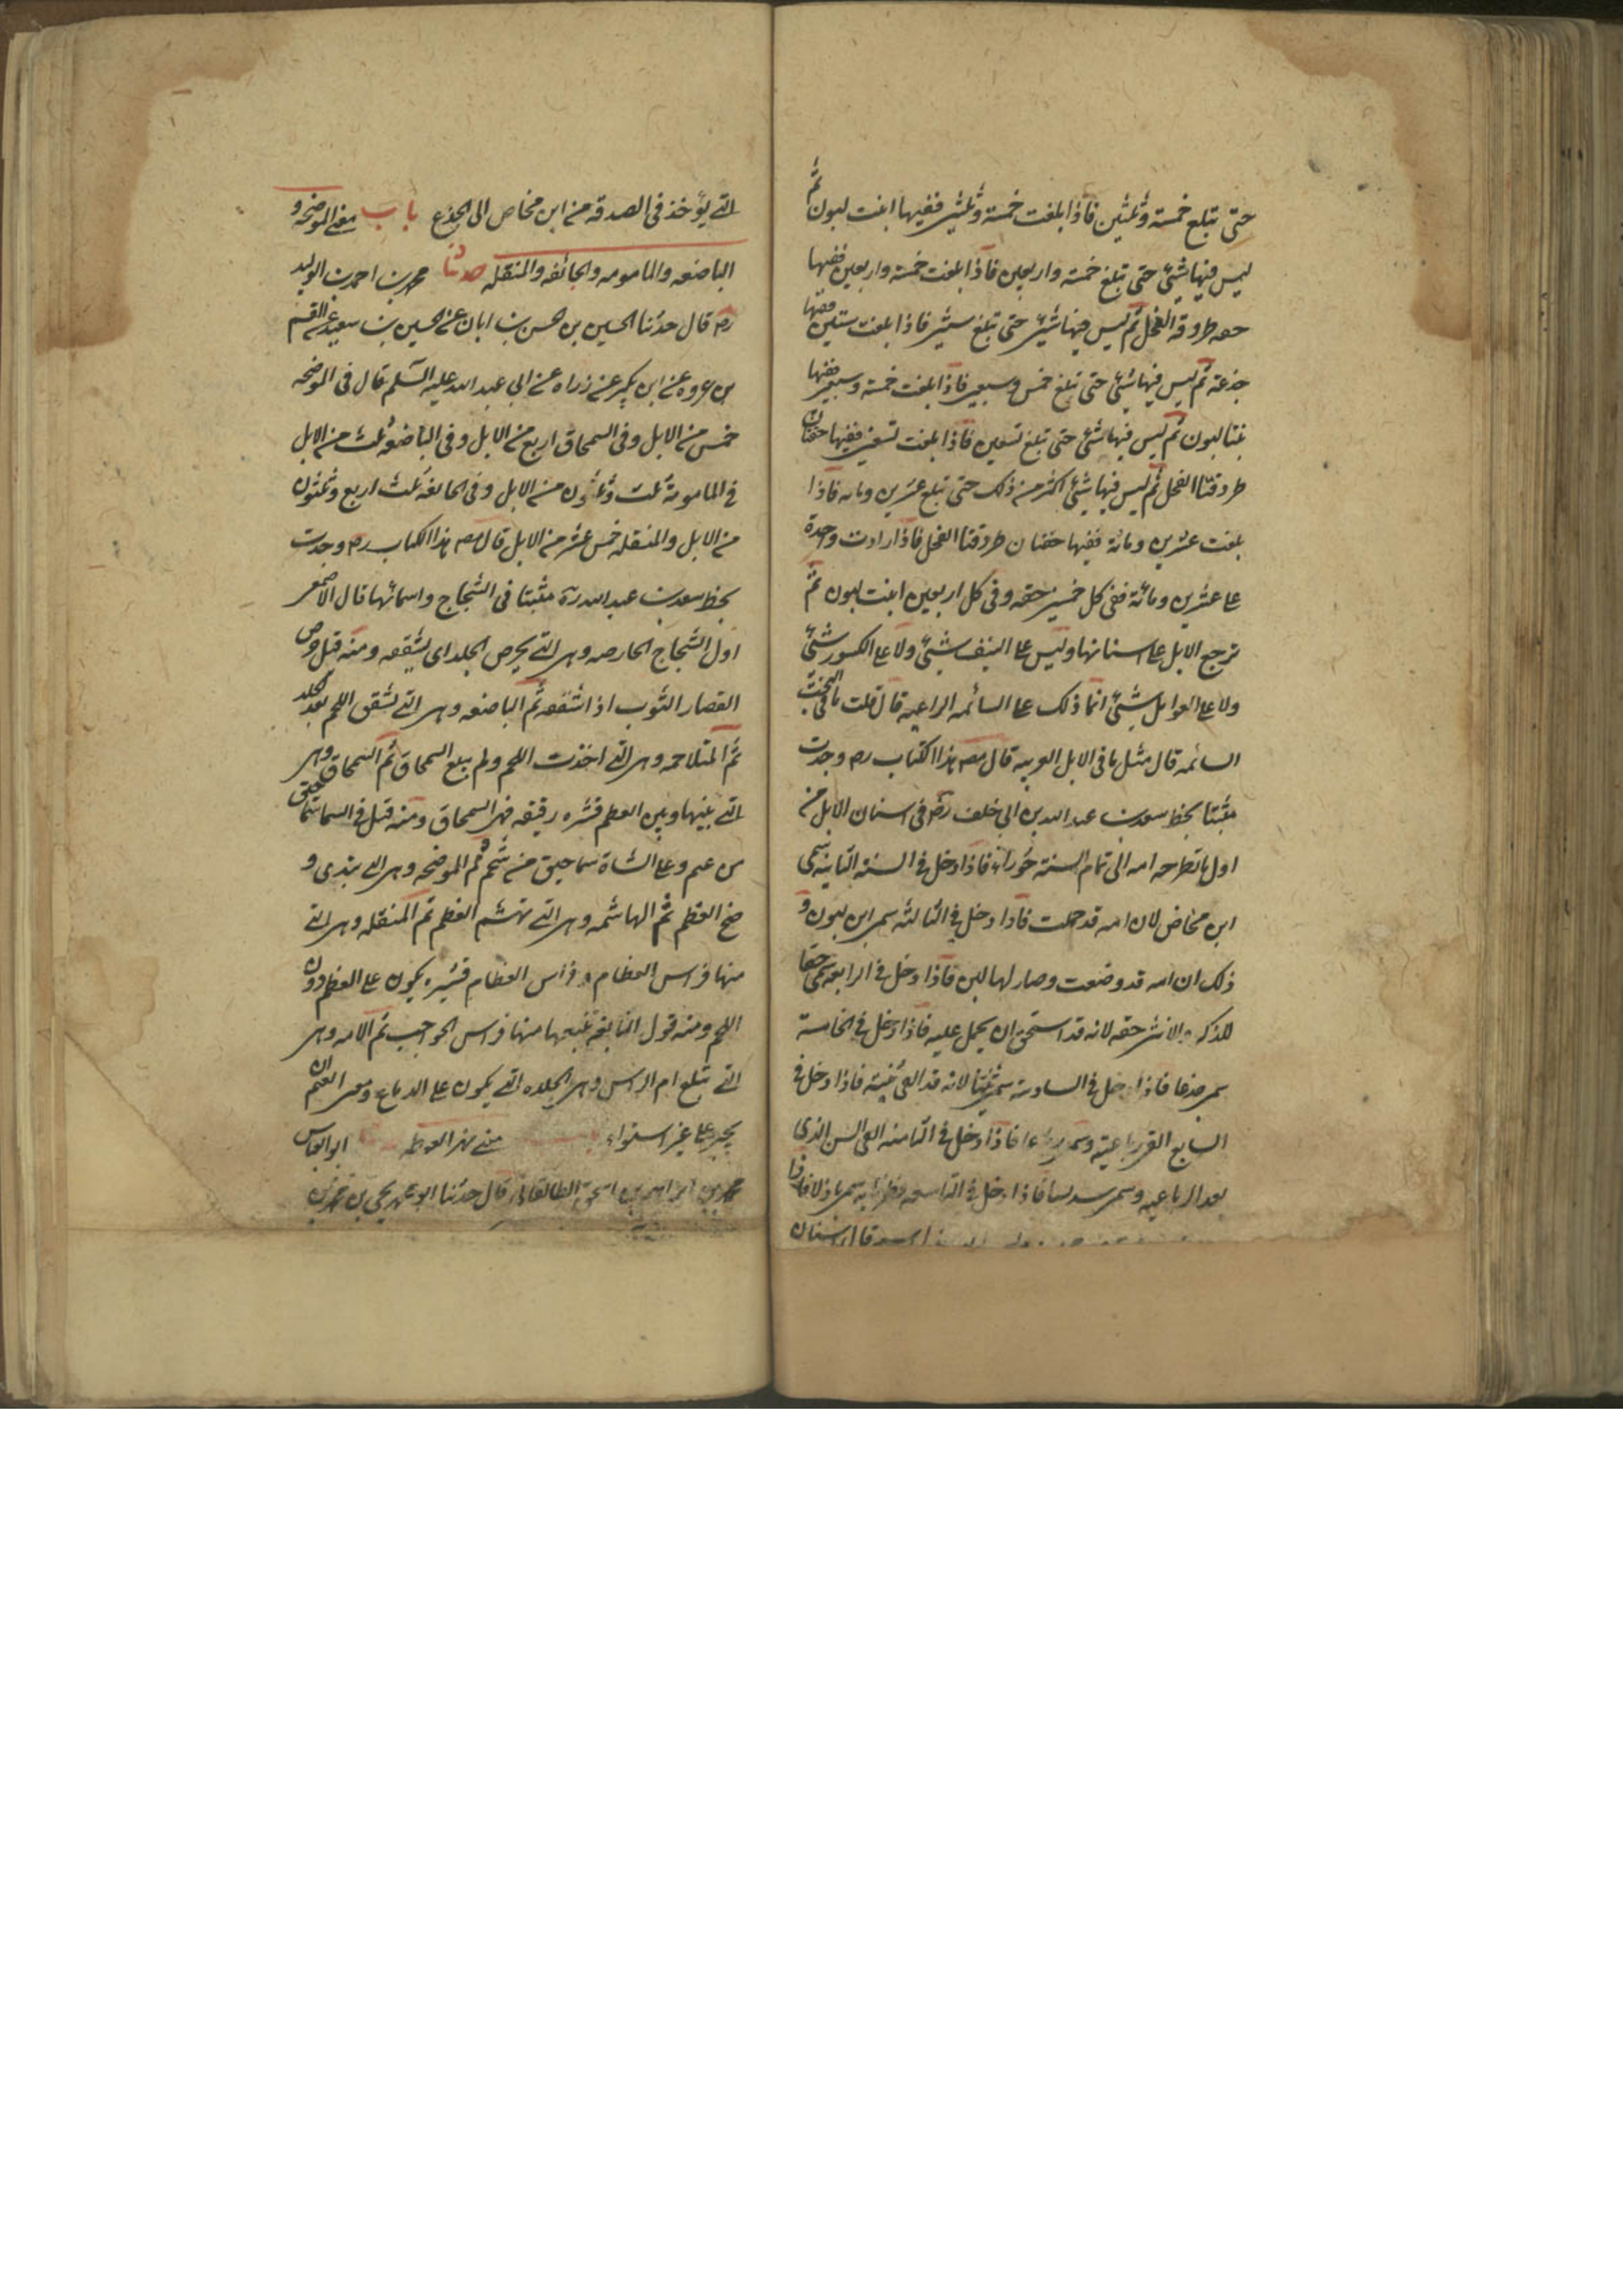 حتى تبلغ خمسة وثلثين فاذا بلغت خمسة وثلثين ففيها ابنت لبون ثم
ليس فيها شئ حتى تبلغ خمسة واربعين فاذا بلغت خمسة واربعين ففيها
حقه طروقه الفحل ثم ليس فيها شئ حتى تبلغ ستين فاذا بلغت ستين ففيها
جذعة ثم ليس فيها شئ حتى تبلغ خمس وسبعين فاذا بلغت خمسة وسبعين ففيها
بنتا لبون ثم ليس فيها شئ حتى تبلغ تسعين فاذا بلغت تسعين ففيها حقتان
طروقتا الفحل ثم ليس فيها شئ اكثر من ذلك حتى تبلغ عشرين ومائه فاذا
بلغت عشرين ومائة ففيها حقتان طروقتا الفحل فاذا زادت واحدة
على عشرين ومائة ففي كل خمسين حقه وفى كل اربعين ابنت لبون ثم
ترجع الابل على اسنانها وليس على النيف شئ ولا على الكسور شئ
ولا على العوامل شئ انما ذلك على السائمه الراعيه قال قلت ما فى البخت
السائمه قال مثل ما فى الابل العربيه قال مصـ هذا الكتاب ره وجدت
مثبتا بخط سعد بن عبد الله بن ابى خلف رضه فى اسنان الابل من
اول ما تطرحه امه الى تمام السنة حُوراً فاذا دخل فى السنة الثانيه سمى
ابن مخاض لان امه قد حملت فاذا دخل فى الثالثه سمى ابن لبون و
ذلك ان امه قد وضعت وصار لها لبن فاذا دخل فى الرابعه سمى حقا
للذكر والانثى حقه لانه قد استحق ان يحمل عليه فاذا دخل فى الخامسة
سمى جذعا فاذا دخل فى السادسة سمى ثنيا لانه قد القى ثنيته فاذا دخل فى
السابع القى رباعيته وسمى رباعا فاذا دخل فى الثامنه القى السن الذى
بعد الرباعيه وسمى سديسا فاذا دخل فى التاسعه فطر نابه سمى بازلا فاذا
اسنان
التى يؤخذ فى الصدقه من ابن مخاص الى الجذع باب معنى الموضحه و
الباضعه والمامومه والجائفه والمنقله حدثنا محمد بن احمد بن الوليد
ره قال حدثنا الحسين بن الحسن بن ابان عن الحسين بن سعيد عن القسم
بن عروه عن ابن بكير عن زراه عن ابى عبد الله عليه السلم قال فى الموضحه
خمس من الابل وفى السمحاق اربع من الابل وفى الباضعه ثلث من الابل
فى المامومة ثلث وثلثون من الابل وفى الجائفه ثلث اربع وثلثون
من الابل والمنقله خمس عشر من الابل قال مصـ هذا الكتاب ره وجدت
بخط سعد بن عبد الله ره مثبتا فى الشجاج واسمائها قال الاصمعى
اول الشجاج الحارصه وهى التى يحرص الجلد اى يشققه ومنه قيل حرص
القصار الثوب اذا شققه ثم الباضعه وهى التى تشق اللحم بعد الجلد
ثم المتلاحمه وهى التى اخذت اللحم ولم يبلغ السمحاق ثم السمحاق وهى
التى بينها وبين العظم قشره رقيقه فهى السمحاق ومنه قيل فى السما سماحيق
من غيم وعلى الشاة سماحيق من شحم ثم الموضحه وهى التى يبدى و
ضح العظم ثم الهاشمه وهى التى تهشم العظم ثم المنقله وهى التى
منها فراس العظام وفراس العظام قشره يكون على العظم دون
اللحم ومنه قول النابغه يتبعها منها فراس الحواجب ثم الامه وهى
التى تبلغ ام الراس وهى الجلده التى يكون على الدماغ ومعنى العثم ان
يجبر على غير استواء معنى نهر الغوطه ابو العباس
محمد بن ابراهيم بن اسحق الطالقانى قال حدثنا ابو محمد يحيى بن محمد بن